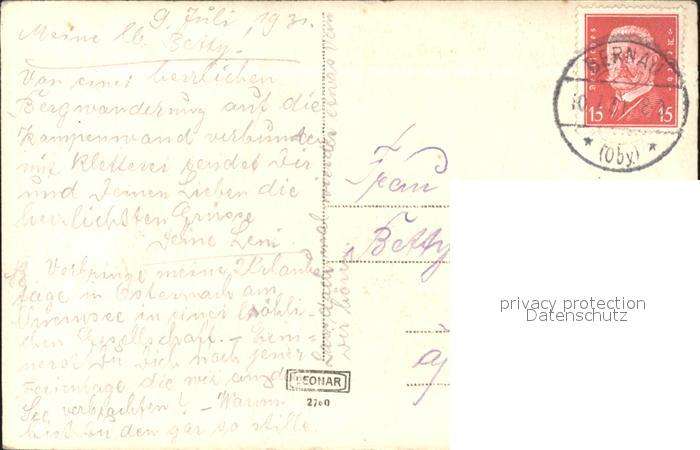 9. Juli, 1931.
Meine lb. Betty.
Von einer herrlichen
Bergwanderung auf die
Kampenwand verbunden
mit Kletterei sendet Dir
und Deinen Lieben die
herzlichsten Grüsse
Deine Leni.
Verbringe meine Urlaubs
tage in Osternach am
Chiemsee in einer fröhli-
chen Gesellschaft. -
nerst Du Dich noch jener
Ferientage, die wir an
See verbrachten! - Warum
bist Du denn gar so stille.
doch mal wieder etwas von
Dir hören
Frau
Betty
DEUTSCHES REICH
15 15
BERNAU
10.7.31. 8-
* (Oby.) *
LEONAR
2760
privacy protection
Datenschutz